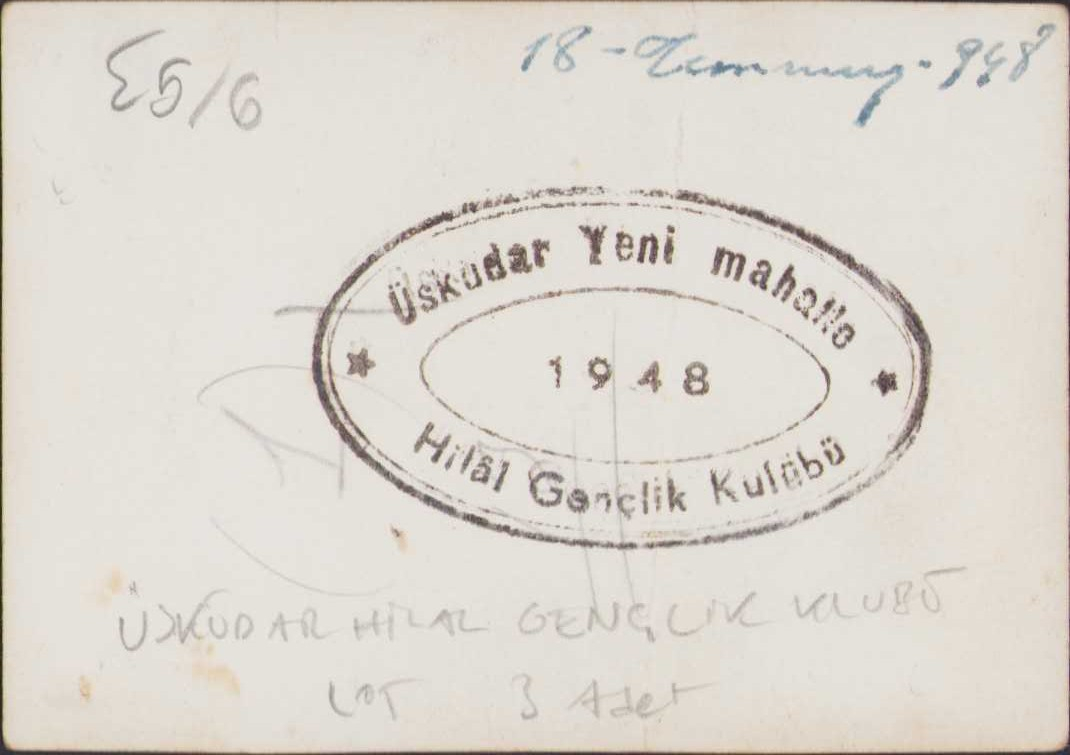 18 - Temmuz - 948
E5/6
Üsküdar Yeni mahalle
1948
Hilâl Gençlik Kulübü
ÜSKÜDAR HİLAL GENÇLİK KLUBÜ
LOT 3 Adet